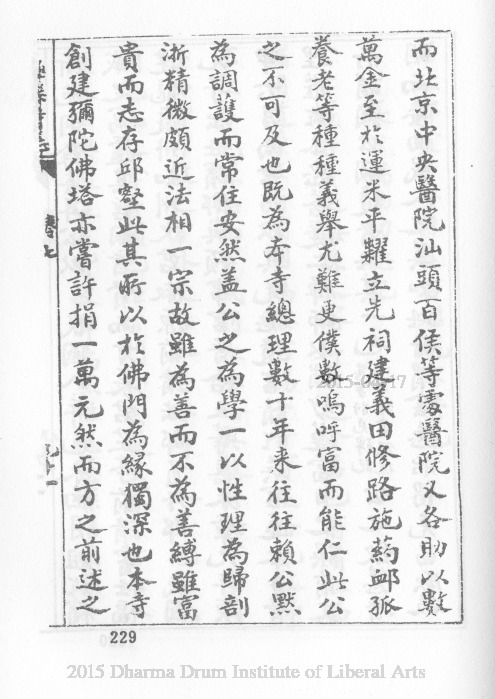 而北京中央醫院汕頭百侯等處醫院又各助以數
萬金至於運米平糶立先祠建義田修路施葯卹孤
養老等種種義舉尤難更僕數嗚呼富而能仁此公
之不可及也既為夲寺總理數十年来往往賴公黙
為調護而常住安然盖公之為學一以性理為歸剖
淅精微頗近法相一宗故雖為善而不為善縛雖富
貴而志存邱壑此其所以於佛門為緣獨深也本寺
創建彌陀佛塔亦嘗許捐一萬元然而方之前述之
卷七
2015-04-17
229
2015 Dharma Drum Institute of Liberal Arts